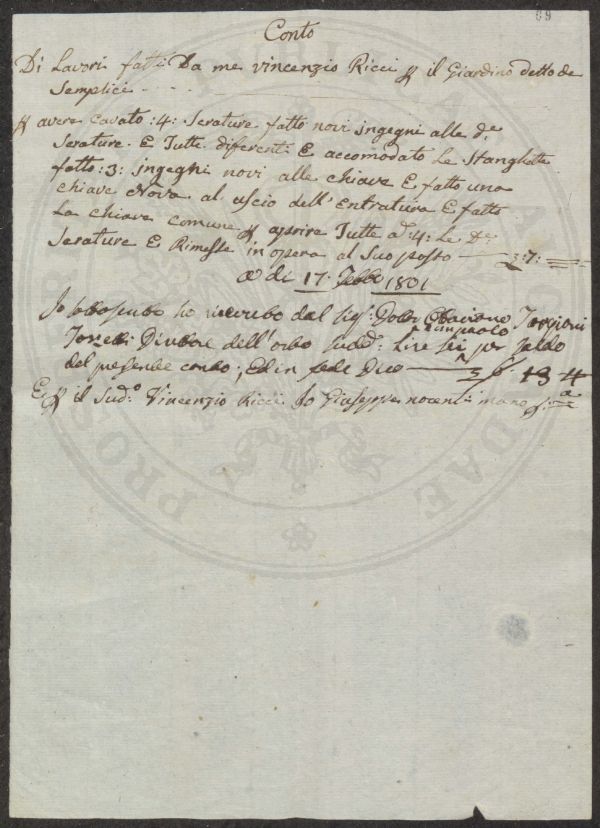 69
Conto
Di Lavori fatti Da me Vincenzio Ricci ꝑ il Giardino detto de
Semplici
ꝑ avere cavato :4: Serature fatto novi ingegni alle de
Serature. E Tutte diferenti E accomodato Le Stanghette
fatto :3: ingegni novi alle chiave E fatto una
chiave Nova al uscio dell'Entratura E fatto
La chiave comune ꝑ aprire Tutte a :4: Le De
Serature E Rimesse in opera al Suo posto 7:
a di 17 Febbo 1801
Io sottoscritto ho ricevuto dal Sig: Dottr Ottaviano Targioni
Tozzetti Direttore dell'orto sudd: Lire Sei per Saldo
del presente conto; Ed in fede Dico 6 13 4
E ꝑ il Sud.o Vincenzio Ricci Io Giuseppe nocenti mano